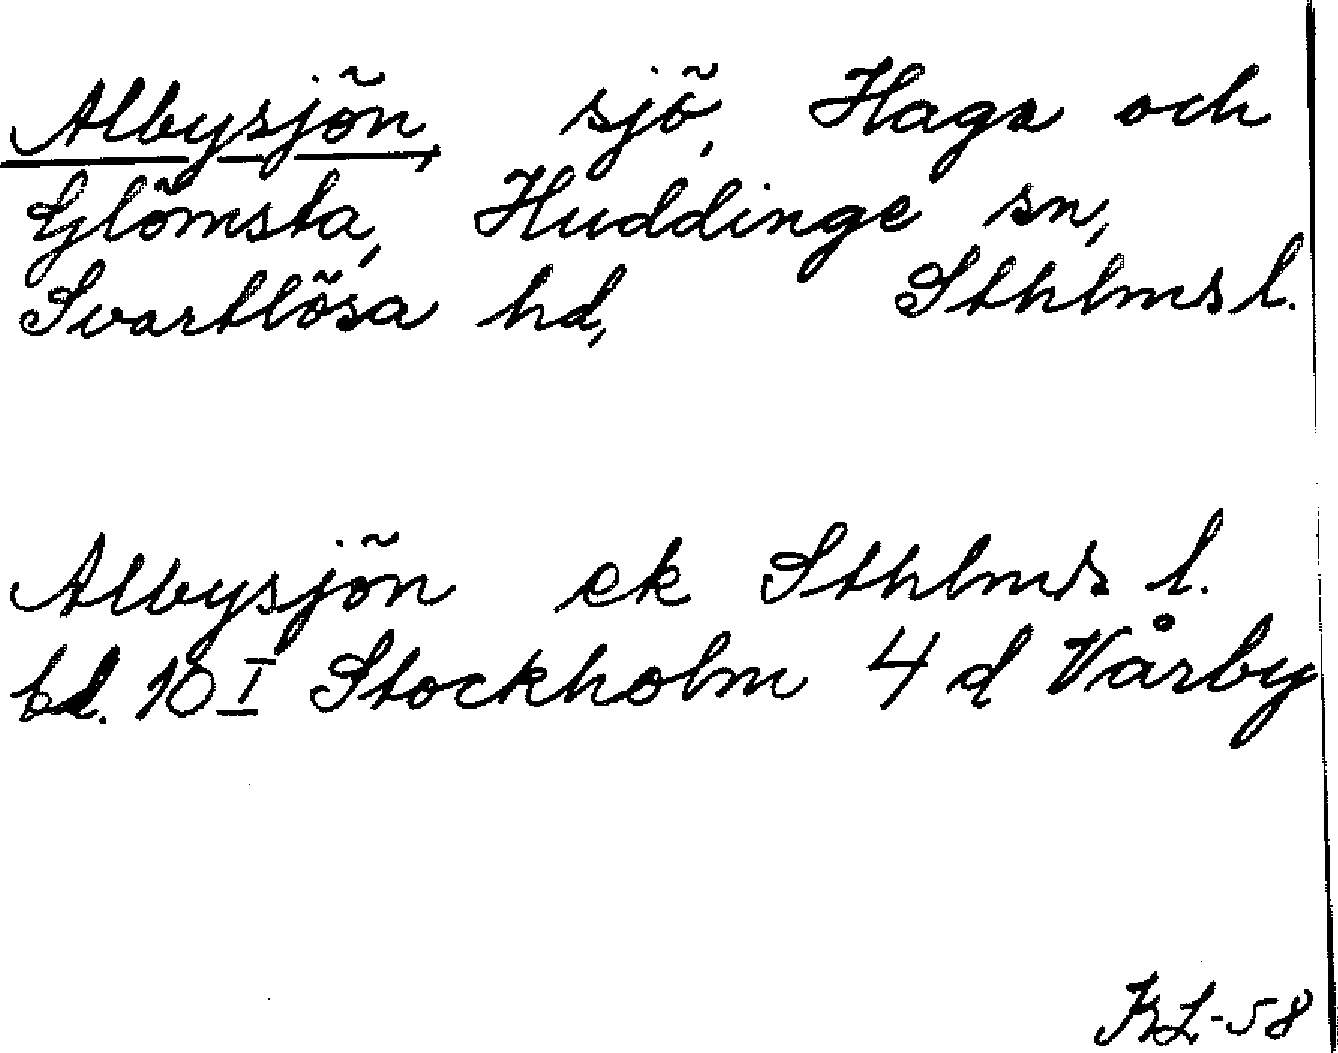 Albysjön, sjö, Haga och
Glömsta, Huddinge sn,
Svartlösa hd, Sthlms l.
Albysjön ek Sthlms l.
bl. 10 I Stockholm 4 d Vårby
KL-58